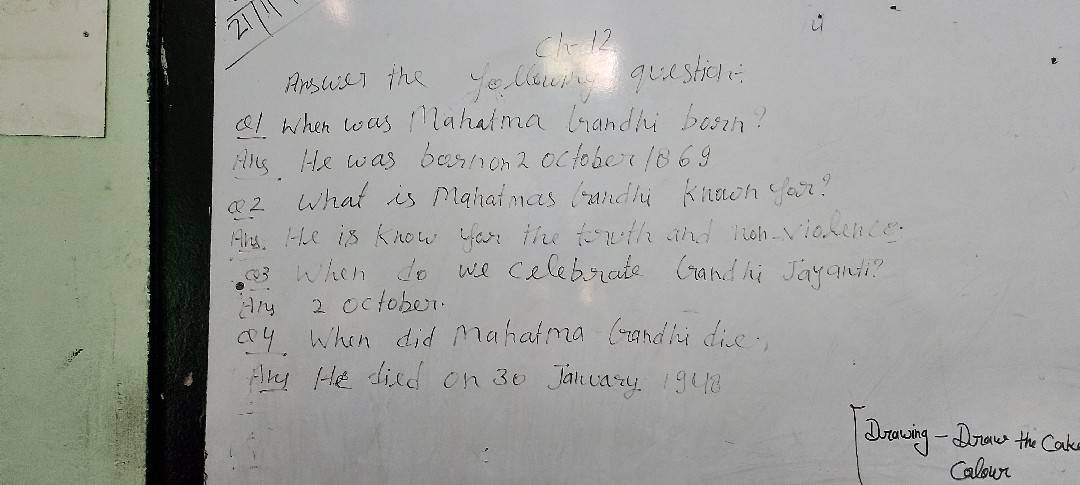 21/11
Ch-12
Answer the following question:-
Q1 When was Mahatma Gandhi born?
Ans. He was born on 2 october 1869
Q2 What is Mahatmas Gandhi known for?
Ans. He is know for the truth and non-violence.
Q3 When do we celebrate Gandhi Jayanti?
Ans 2 october.
Q4 When did Mahatma Gandhi die.
Ans He died on 30 January 1948
Drawing - Draw the Cake
Colour